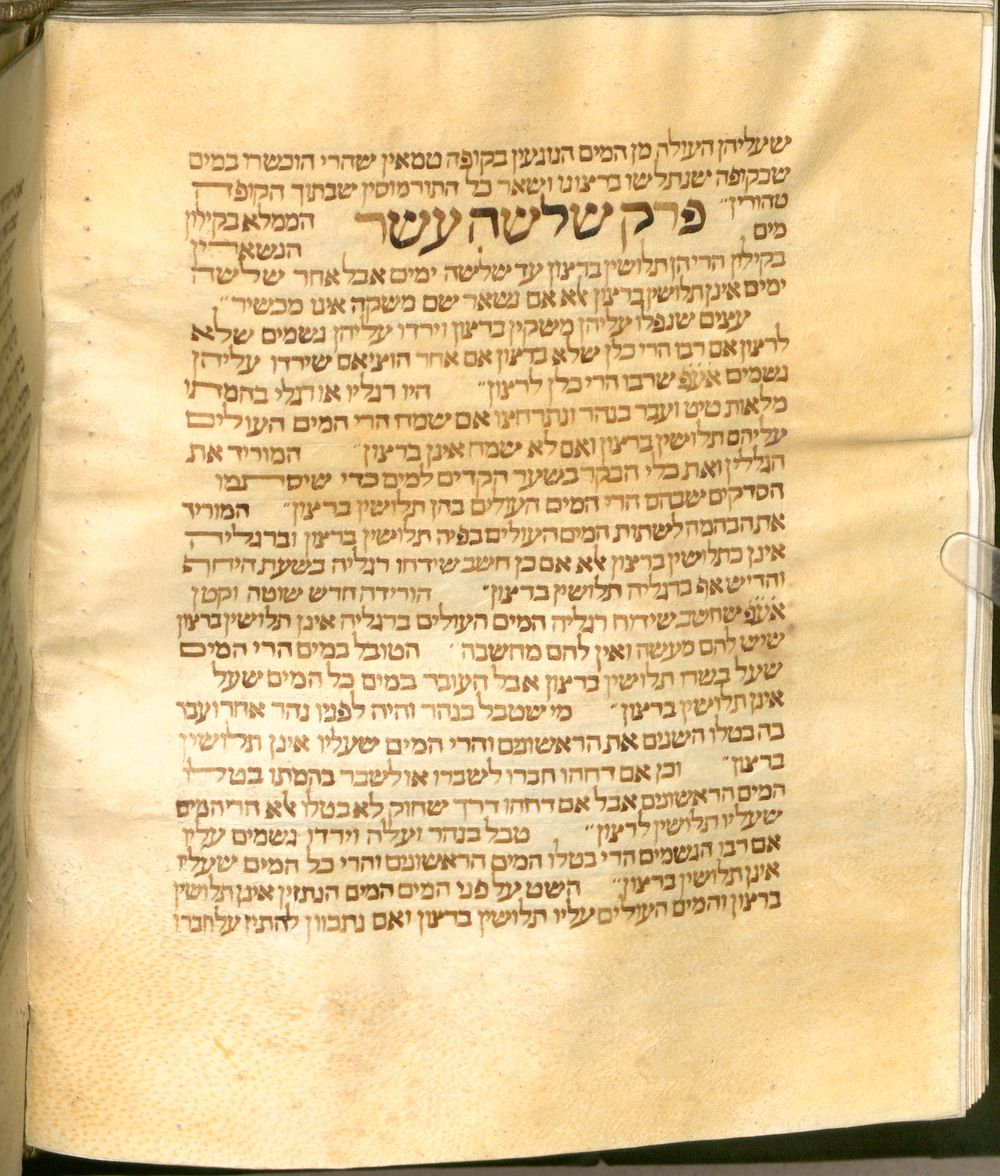 שעליהן העולה מן המים הנוגעין בקופה טמאין שהרי הוכשרו במים
שבקופה שנתלישו ברצונו ושאר כל התורמוסין שבתוך הקופה
טהורין״
פרק שלשה עשר
הממלא בקילין
מים
הנשארין
בקילין הרי הן תלושין ברצון עד שלשה ימים אבל אחר שלשה
ימים אינן תלושין ברצון לא אם נשאר שם משקה אינו מכשיר״
עצים שנפלו עליהן משקין ברצון וירדו עליהן גשמים שלא
לרצון אם רבו הרי כלן שלא ברצון אם אחר הוציאם שירדו עליהן
גשמים אעפ שרבו הרי כלן לרצון״ היו רגליו או רגלי בהמתו
מלאות טיט ועבר בנהר ונתרחצו אם שמח הרי המים העולים
עליהם תלושין ברצון ואם לא שמח אינן ברצון״ המוריד את
הגללין ואת כלי הבקר בשער הקדים למים כדי שיסתמו
הסדקים שבהם הרי המים העולים בהן תלושין ברצון״ המוריד
את הבהמה לשתות המים העולים בפיה תלושין ברצון וברגליה
אינן כתלושין ברצון לא אם כן חשב שידחו רגליה בשעת היחף
והדיש אף ברגליה תלושין ברצון״ הורידה חרש שוטה וקטן
אעפ שחשב שידוחו רגליה המים העולים ברגליה אינן תלושין ברצון
שיש להם מעשה ואין להם מחשבה״ הטובל במים הרי המים
שעל בשרו תלושין ברצון אבל העובר במים כל המים שעל
אינן תלושין ברצון״ מי שטבל בנהר והיה לפניו נהר אחר ועבר
בה בטלו השנים את הראשונים והרי המים שעליו אינן תלושין
ברצון״ וכן אם דחהו חברו לשכרו או לשכר בהמתו בטלו
המים הראשונים אבל אם דחהו דרך שחוק לא בטלו לא הרי המים
שעליו תלושין לרצון״ טבל בנהר ועלה וירדו גשמים עליו
אם רבו הגשמים הרי בטלו המים הראשונים והרי כל המים שעליו
אינן תלושין ברצון״ השט על פני המים המים הנתזין אינן תלושין
ברצון והמים העולים עליו תלושין ברצון ואם נתכוון להתיז על חברו